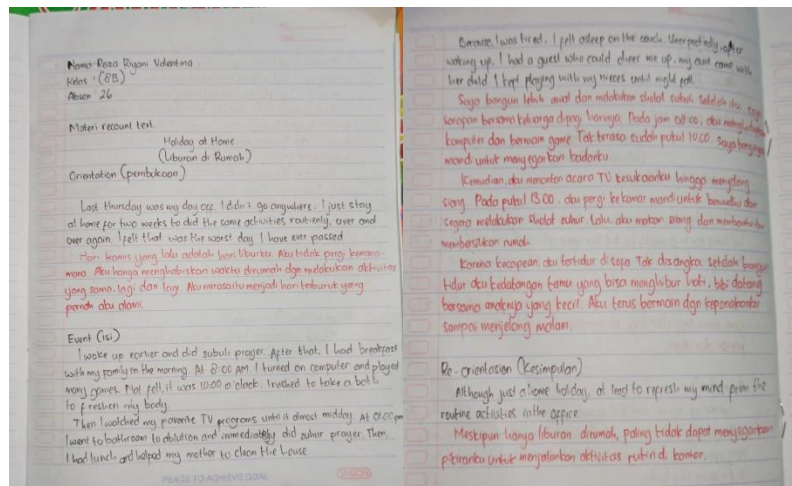 Nama: Reiza Riyani Valentina
Kelas : (8B)
Absen 26
Materi recount text.
Holiday at Home
(Liburan di Rumah)
Orientation (pembukaan)
Last thursday was my day off. I didn't go anywhere. I just stay
at home for two weeks to did the same activities routienly, over and
over again. I felt that was the worst day I have ever passed
Hari kamis yang lalu adalah hari liburku. Aku tidak pergi kemana-
mana. Aku hanya menghabiskan waktu dirumah dgn melakukan aktivitas
yang sama, lagi dan lagi. Aku merasa itu menjadi hari terburuk yang
pernah aku alami.
Event (isi)
I woke up earlier and did subuh prayer. After that, I had breakfast
with my family in the morning. At 8:00 AM. I turned on computer and played
many games. Not fell, it was 10:00 o'clock. I rushed to take a bath
to freshen my body.
Then I watched my favorite TV programs until it almost midday. At 01:00 pm
I went to bathroom to ablution and immediately did zuhur prayer. Then,
I had lunch and helped my mother to clean the house
PEACE TO ACHIEVE GOAL
VISION
Because, I was tired. I felt asleep on the couch. Unexpectedly, after
waking up, I had a guest who could cheer me up, my aunt came with
her child I kept playing with my nieces until night fell.
Saya bangun lebih awal dan melakukan sholat subuh. Setelah itu, saya
sarapan bersama keluarga di pagi harinya. Pada jam 08.00, aku menghidupkan
komputer dan bermain game. Tak terasa sudah pukul 10.00. Saya bergegas
mandi untuk menyegarkan badanku.
Kemudian, aku menonton acara TV kesukaanku hingga menjelang
siang. Pada pukul 13.00, aku pergi ke kamar mandi untuk berwudhu dan
segera melakukan sholat zuhur. Lalu, aku makan siang dan membantu ibu
membersihkan rumah.
Karena kecapean, aku tertidur di sofa. Tak disangka, setelah bangun
tidur aku kedatangan tamu yang bisa menghibur hati, bibi datang
bersama anaknya yang kecil. Aku terus bermain dgn keponakanku
sampai menjelang malam.
Re-orientasion (Kesimpulan)
Although just a home holiday, at least to refresh my mind from the
routine activities in the office
Meskipun hanya liburan dirumah, paling tidak dapat menyegarkan
pikiranku untuk menjalankan aktivitas rutin di kantor.